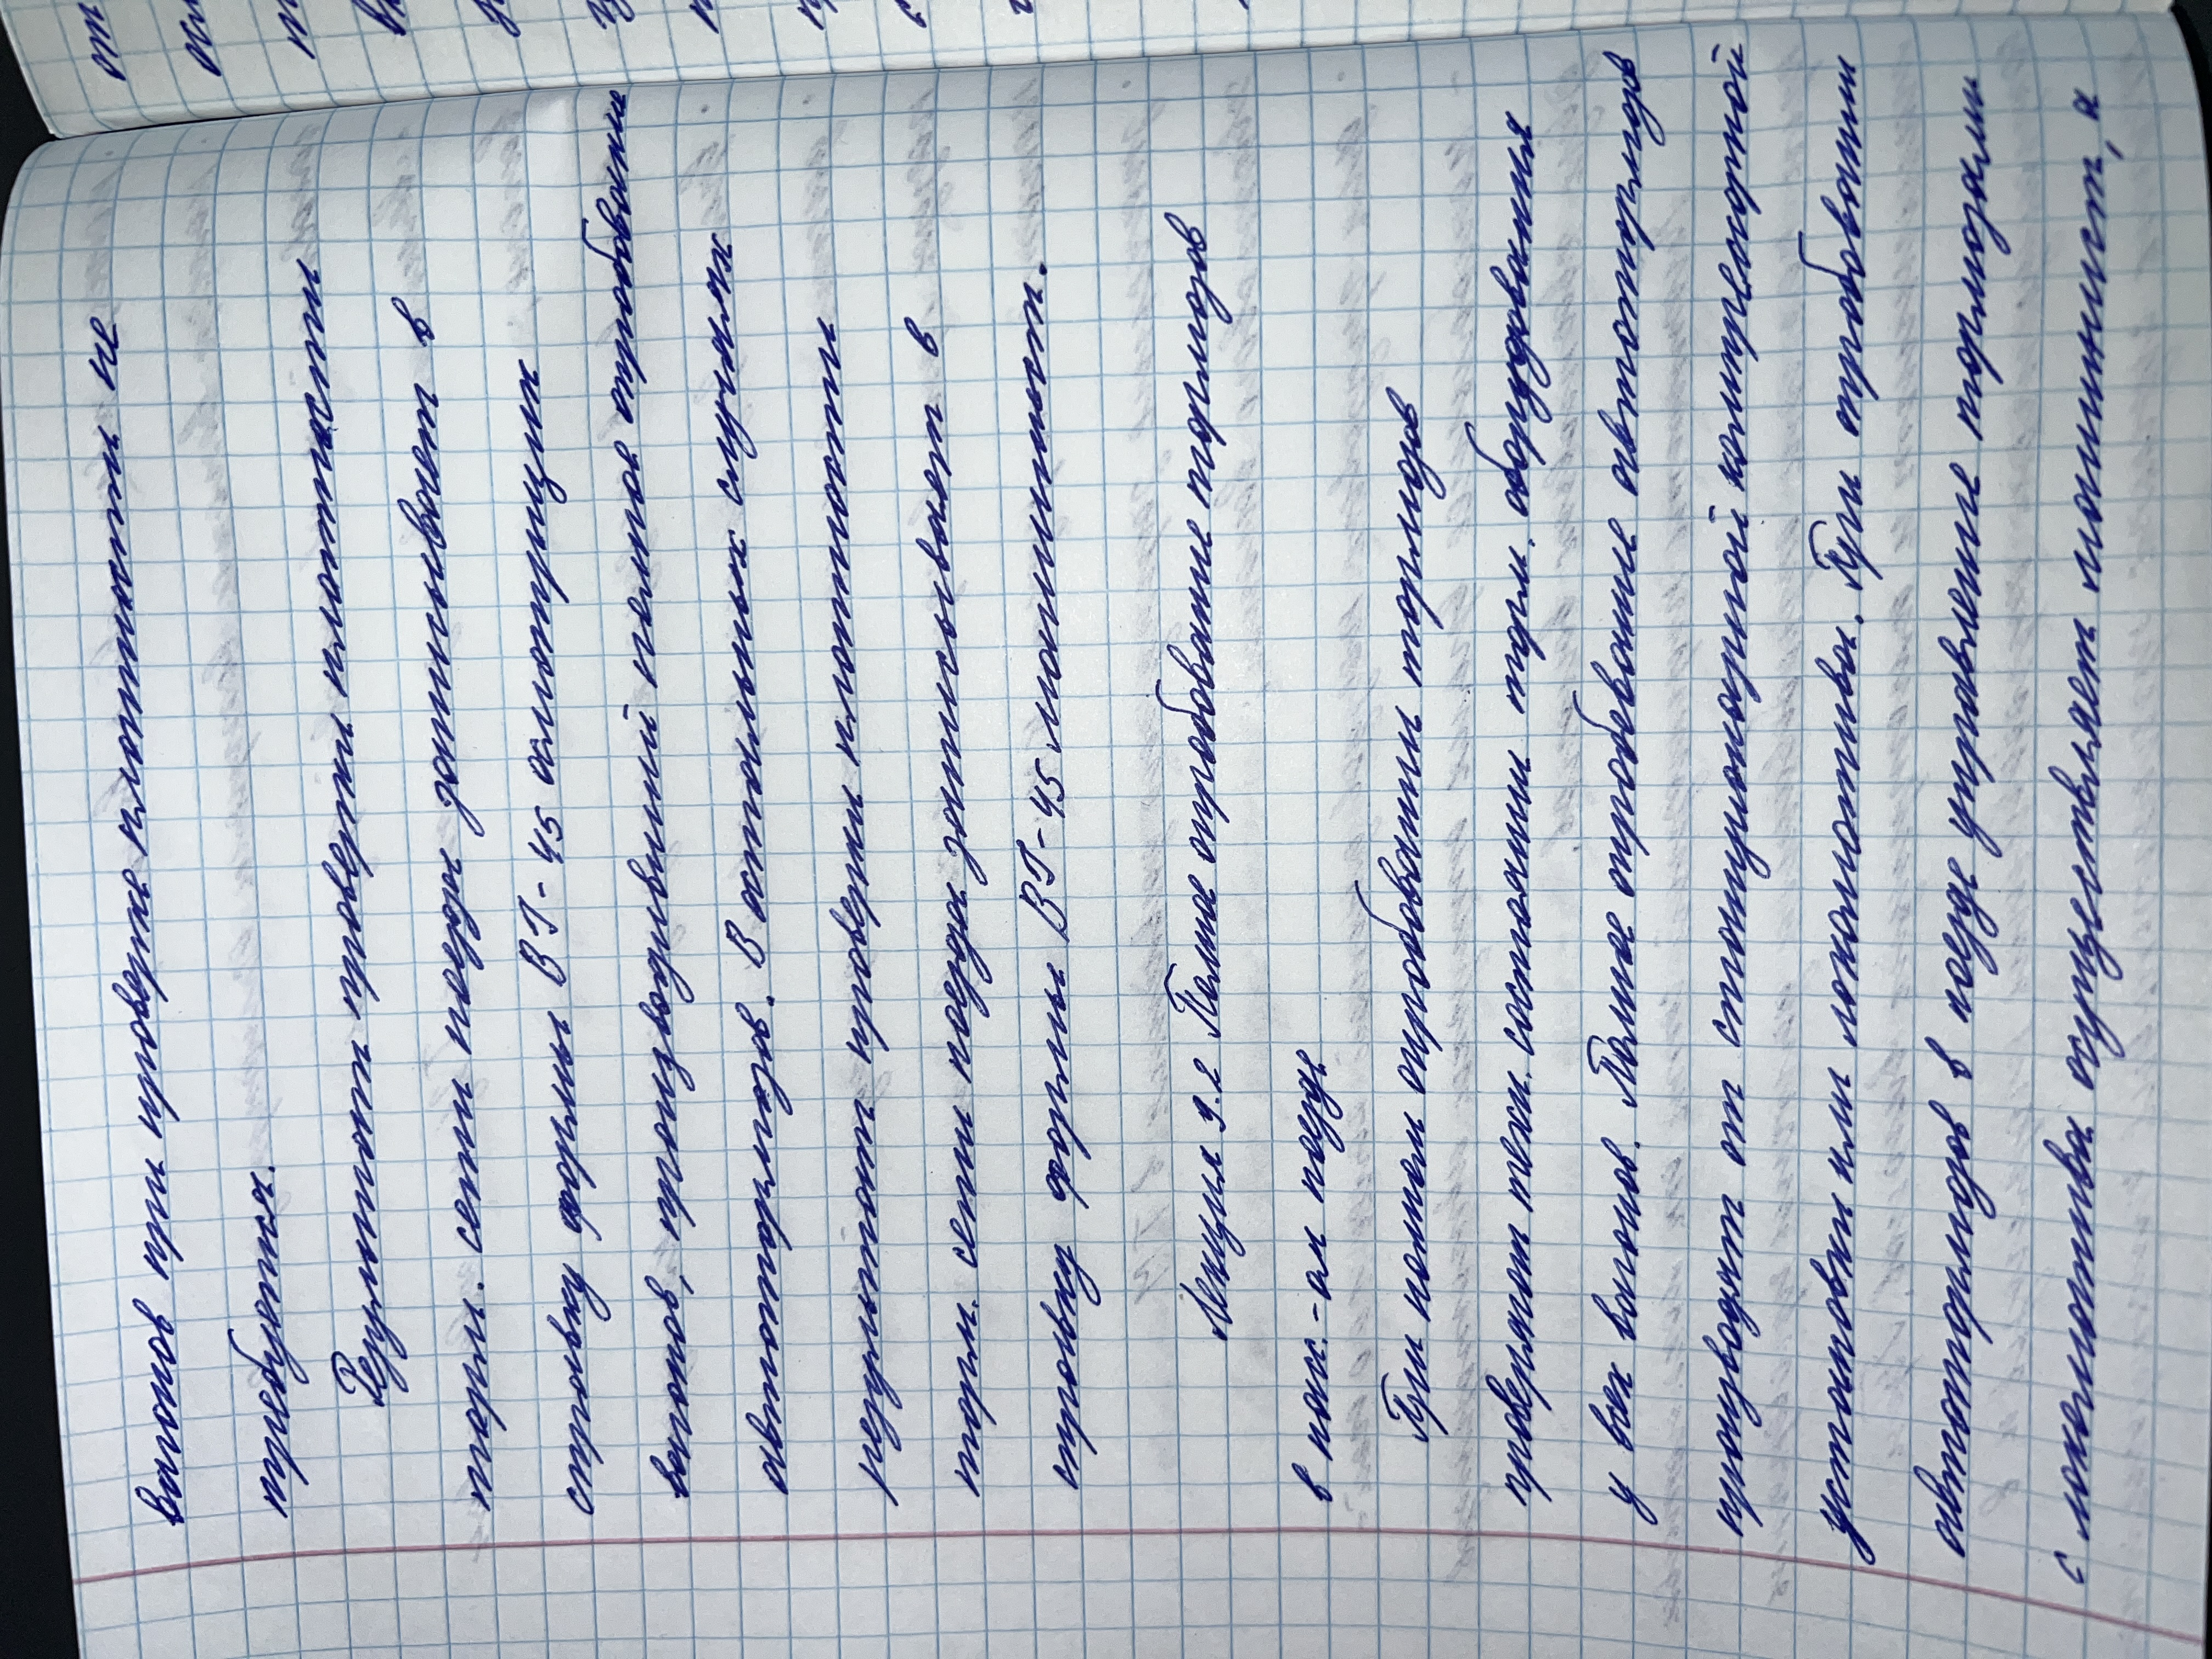 вагонов при проверке плотности не
требуется.
Результат проверки плотности
торм. сети поезда записывает в
справку формы ВУ-45 осмотрщик
вагонов, производивший полное опробование
автотормозов. В остальных случаях
результат проверки плотности
торм. сети поезда записывает в
справку формы ВУ-45 машинист.
Лекция 9.2 Полное опробование тормозов
в пасс.-ом поезде
При полном опробовании тормозов
проверяют техн. состоянии торм. оборудования
у всех вагонов. Полное опробование автотормозов
производят от стационарной компрессорной
установки или локомотива. При опробовании
автотормозов в поезде управление тормозами
с локомотива осуществляет машинист, а